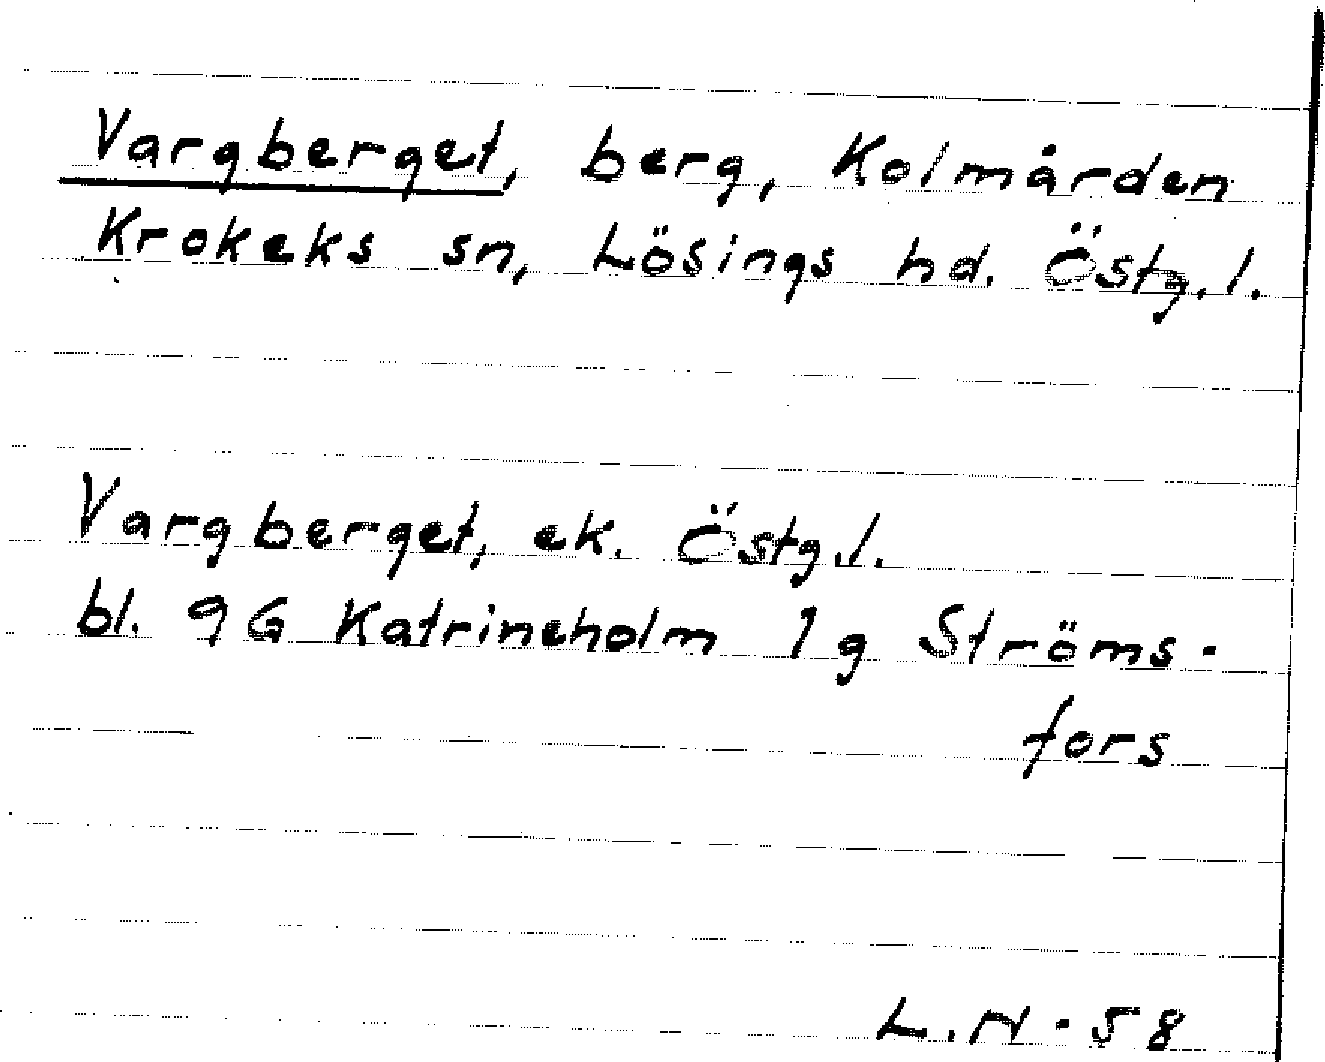 Vargberget, berg, Kolmården
Krokeks sn, Lösings hd. Östg.l.
Vargberget, ek. Östg.l.
bl. 9G Katrineholm 1g Ströms-
fors
L.H-58